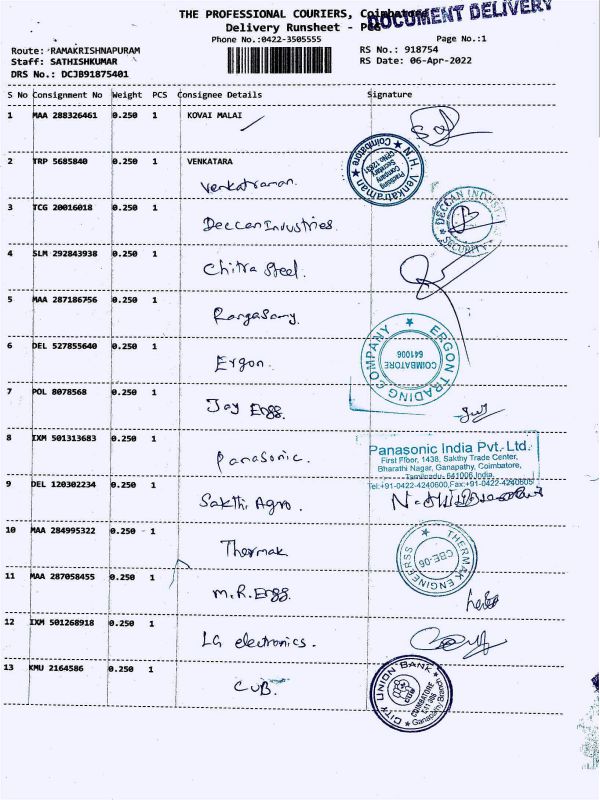 DOCUMENT DELIVERY
THE PROFESSIONAL COURIERS, Coimbatore
Delivery Runsheet - PCS
Phone No.:0422-3505555
Page No.:1
Route: RAMAKRISHNAPURAM
RS No.: 918754
Staff: SATHISHKUMAR
RS Date: 06-Apr-2022
DRS No.: DCJB91875401
S No Consignment No Weight PCS Consignee Details Signature
1 MAA 288326461 0.250 1 KOVAI MALAI
2 TRP 5685840 0.250 1 VENKATARA
Venkatraman.
N.H. Venkatraman
Practising Company Secretary
Coimbatore
3 TCG 20016018 0.250 1
Deccan Industries.
DECCAN INDUSTRIES
SECURITY
4 SLM 292843938 0.250 1
Chitra Steel.
5 MAA 287186756 0.250 1
Rangasamy.
6 DEL 527855640 0.250 1
Ergon.
ERGON TRADING COMPANY
COIMBATORE
641006
7 POL 8078568 0.250 1
Jay Engg.
8 IXM 501313683 0.250 1
Panasonic.
Panasonic India Pvt. Ltd.
First Floor, 1438, Sakthy Trade Center,
Bharathi Nagar, Ganapathy, Coimbatore,
Tamilnadu-641006, India.
Tel:+91-0422-4240600,Fax:+91-0422-4240605
9 DEL 120302234 0.250 1
Sakthi Agro.
10 MAA 284995322 0.250 1
Thermak
THERMAK ENGINEERSS
CBE-06
11 MAA 287058455 0.250 1
M.R. Engg.
12 IXM 501268918 0.250 1
LG electronics.
13 KMU 2164586 0.250 1
CUB.
CITY UNION BANK
COIMBATORE
Ganapathy Branch